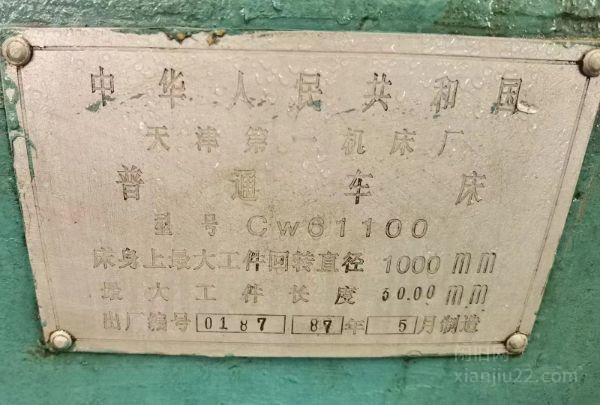 中华人民共和国
天津第一机床厂
普通车床
型号 CW61100
床身上最大工件回转直径 1000mm
最大工件长度 5000mm
出厂编号 0187 87年 5月制造
xianjiu22.com